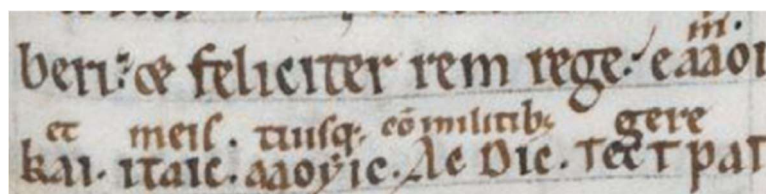 beri: & feliciter rem rege: eaaoi
et meis. tuisq; cōmilitib; gere
kai. itaic. aaoyic. Ac Dic. Tect pat